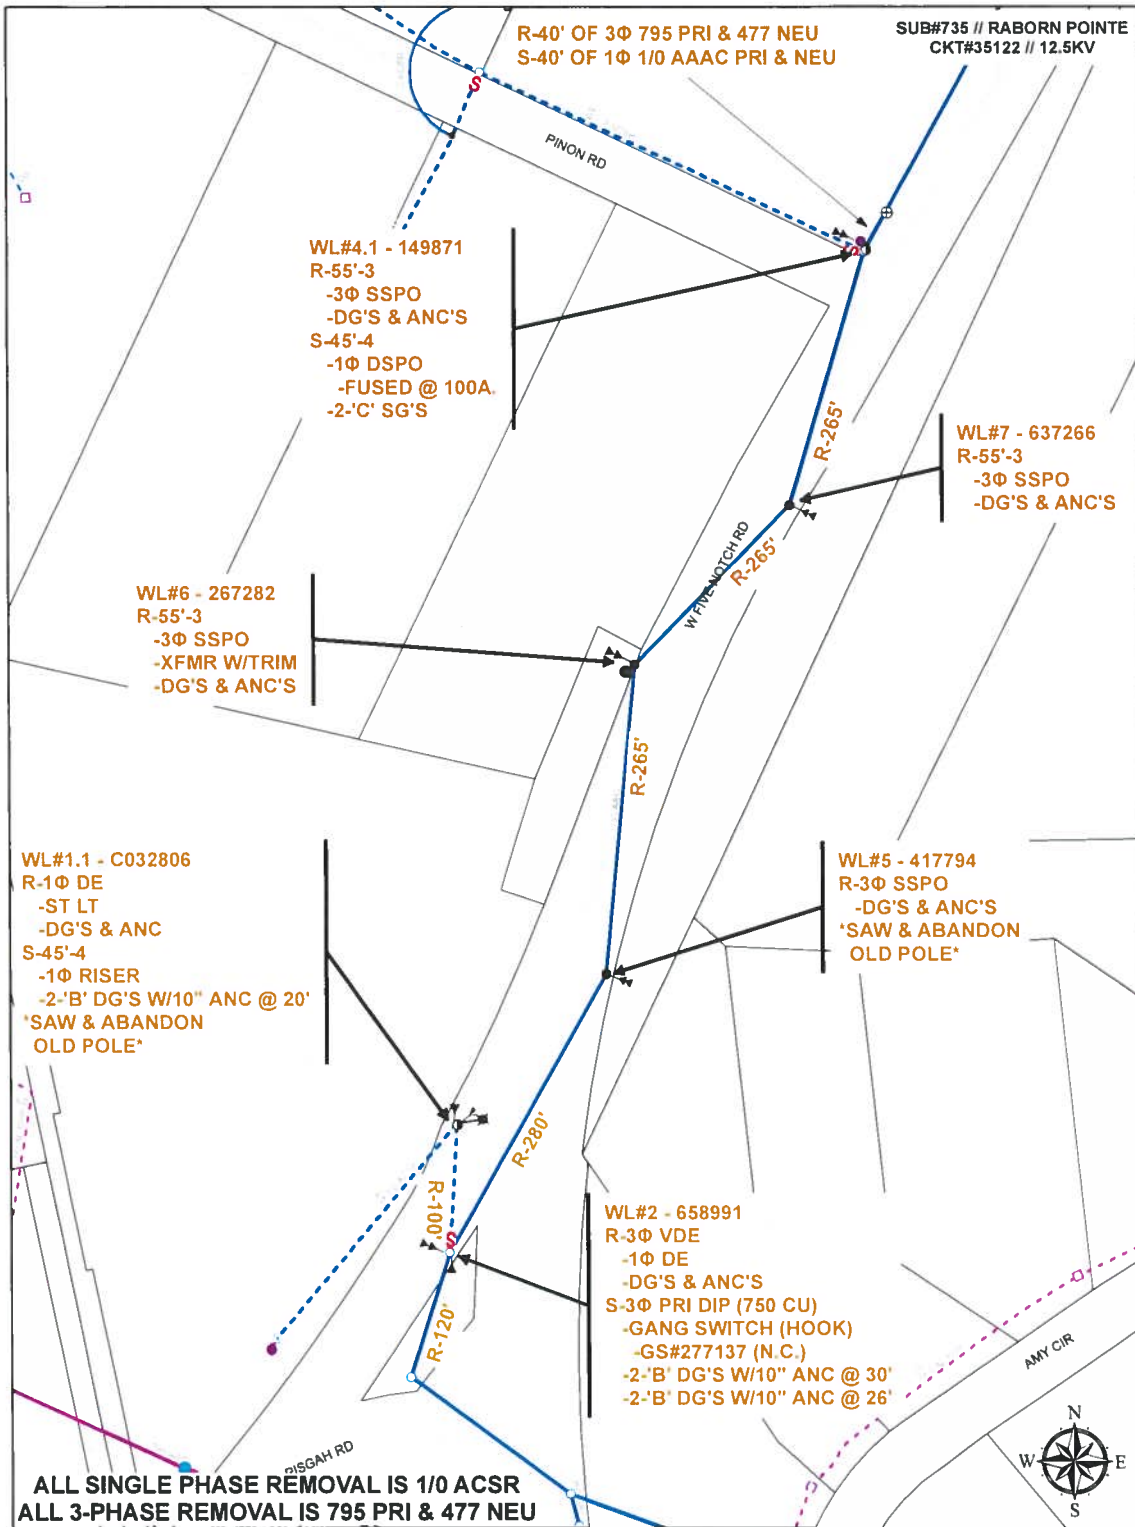 R-40' OF 3Φ 795 PRI & 477 NEU
S-40' OF 1Φ 1/0 AAAC PRI & NEU
SUB#735 // RABORN POINTE
CKT#35122 // 12.5KV
S
PINON RD
S
WL#4.1 - 149871
R-55'-3
-3Φ SSPO
-DG'S & ANC'S
S-45'-4
-1Φ DSPO
-FUSED @ 100A.
-2-'C' SG'S
R-265'
WL#7 - 637266
R-55'-3
-3Φ SSPO
-DG'S & ANC'S
W FIVE NOTCH RD
R-265'
WL#6 - 267282
R-55'-3
-3Φ SSPO
-XFMR W/TRIM
-DG'S & ANC'S
R-265'
WL#1.1 - C032806
R-1Φ DE
-ST LT
-DG'S & ANC
S-45'-4
-1Φ RISER
-2-'B' DG'S W/10" ANC @ 20'
*SAW & ABANDON
OLD POLE*
WL#5 - 417794
R-3Φ SSPO
-DG'S & ANC'S
*SAW & ABANDON
OLD POLE*
R-280'
R-100'
S
R-120'
WL#2 - 658991
R-3Φ VDE
-1Φ DE
-DG'S & ANC'S
S-3Φ PRI DIP (750 CU)
-GANG SWITCH (HOOK)
-GS#277137 (N.C.)
-2-'B' DG'S W/10" ANC @ 30'
-2-'B' DG'S W/10" ANC @ 26'
AMY CIR
N
W E
S
PISGAH RD
ALL SINGLE PHASE REMOVAL IS 1/0 ACSR
ALL 3-PHASE REMOVAL IS 795 PRI & 477 NEU